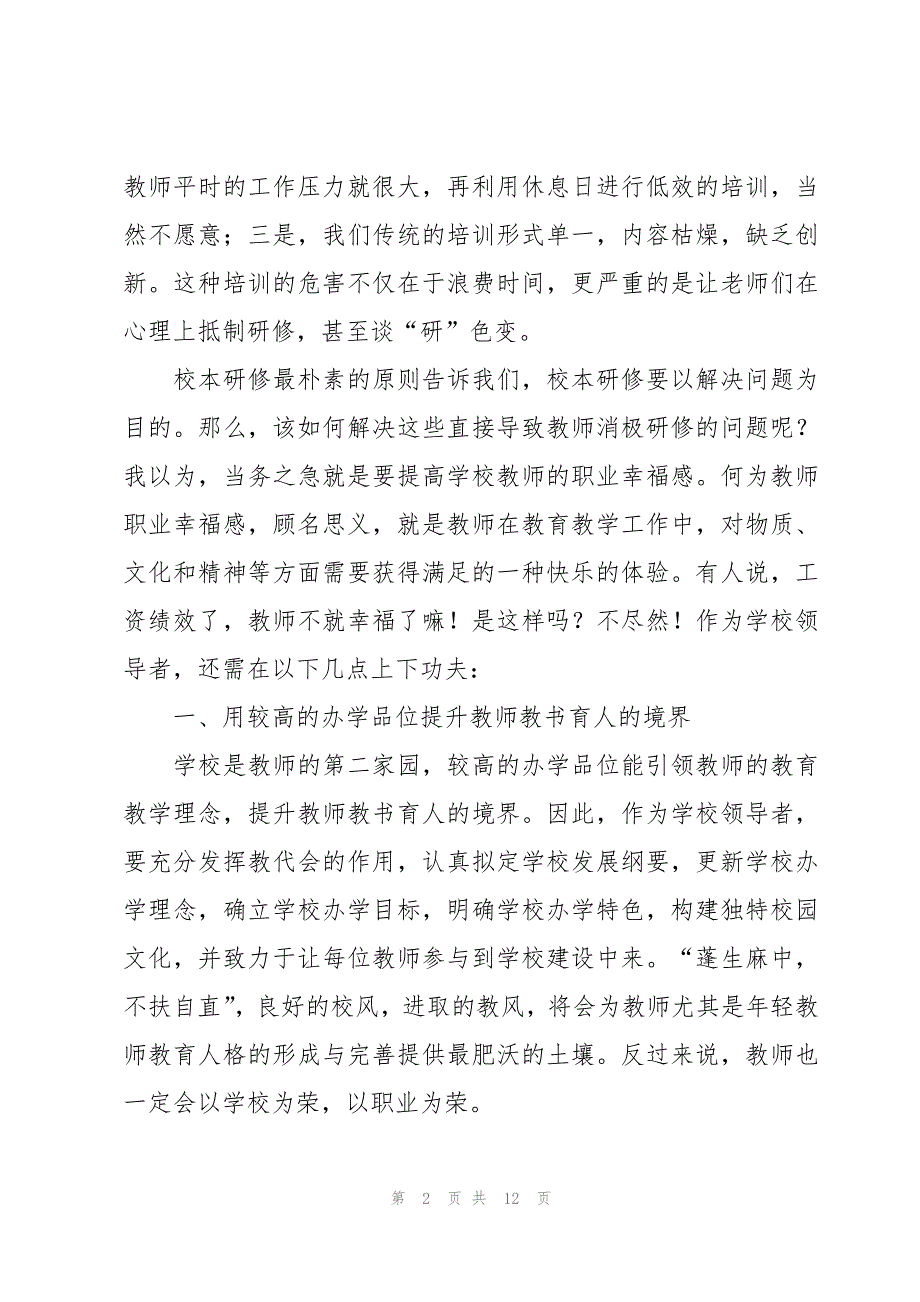 教师平时的工作压力就很大，再利用休息日进行低效的培训，当
然不愿意；三是，我们传统的培训形式单一，内容枯燥，缺乏创
新。这种培训的危害不仅在于浪费时间，更严重的是让老师们在
心理上抵制研修，甚至谈“研”色变。
校本研修最朴素的原则告诉我们，校本研修要以解决问题为
目的。那么，该如何解决这些直接导致教师消极研修的问题呢？
我以为，当务之急就是要提高学校教师的职业幸福感。何为教师
职业幸福感，顾名思义，就是教师在教育教学工作中，对物质、
文化和精神等方面需要获得满足的一种快乐的体验。有人说，工
资绩效了，教师不就幸福了嘛！是这样吗？不尽然！作为学校领
导者，还需在以下几点上下功夫：
一、用较高的办学品位提升教师教书育人的境界
学校是教师的第二家园，较高的办学品位能引领教师的教育
教学理念，提升教师教书育人的境界。因此，作为学校领导者，
要充分发挥教代会的作用，认真拟定学校发展纲要，更新学校办
学理念，确立学校办学目标，明确学校办学特色，构建独特校园
文化，并致力于让每位教师参与到学校建设中来。“蓬生麻中，
不扶自直”，良好的校风，进取的教风，将会为教师尤其是年轻教
师教育人格的形成与完善提供最肥沃的土壤。反过来说，教师也
一定会以学校为荣，以职业为荣。
第 2 页 共 12 页